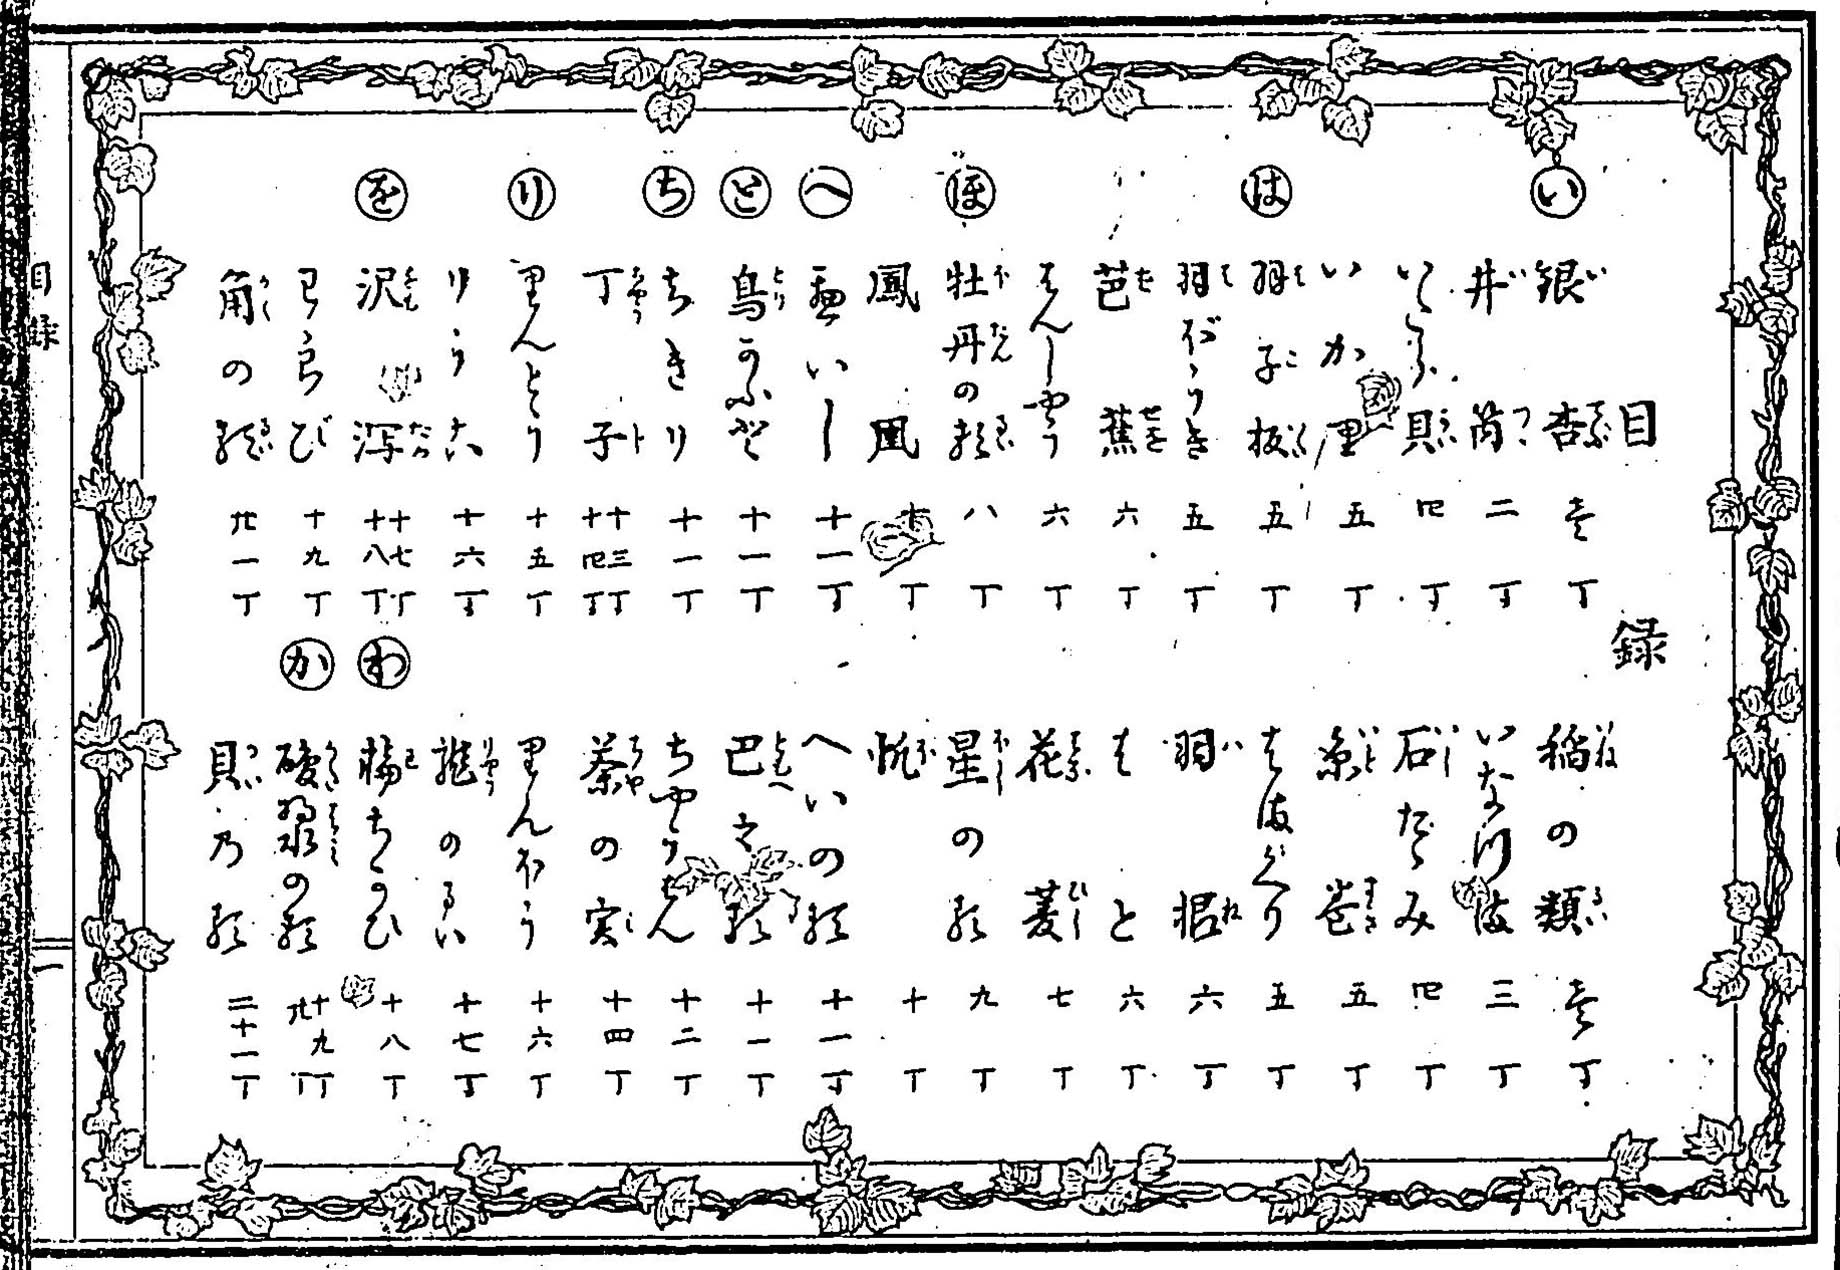 目録
い
銀杏 壱丁
井筒 二丁
貝 四丁
いか里 五丁
は
羽子板 五丁
羽ばうき 五丁
芭蕉 六丁
はんしやう 六丁
ほ
牡丹の類 八丁
鳳凰 十丁
へ
へいし 十一丁
と
鳥かぶと 十一丁
ち
ちきり 十一丁
丁子 十三丁 十四丁
り
里んとう 十五丁
りうご 十六丁
を
沢瀉 十七丁 十八丁
わらび 十九丁
角の類 廿一丁
稲の類 壱丁
いなづま 三丁
石だゝみ 四丁
糸巻 五丁
はまぐり 五丁
羽根 六丁
はと 六丁
花菱 七丁
星の類 九丁
帆 十丁
へいの類 十一丁
巴之類 十一丁
ちやうせん 十二丁
茶の実 十四丁
里んぼう 十六丁
龍のるい 十七丁
わ
輪ちがひ 十八丁
か
の類 十九丁 廿丁
貝乃類 二十一丁
目録
一